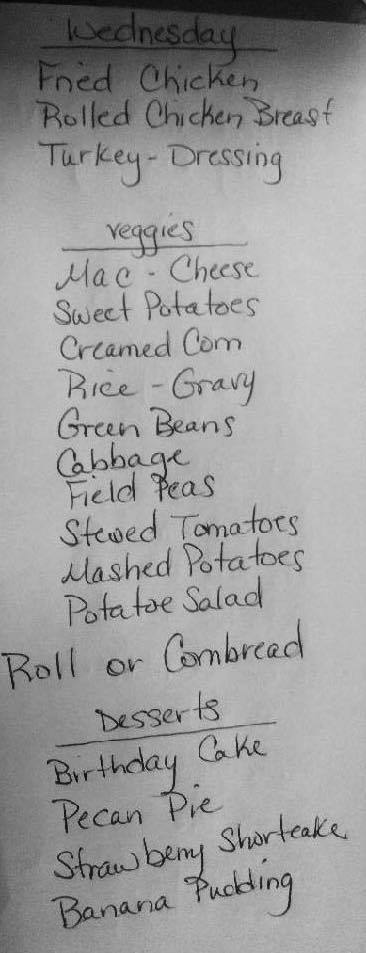 Wednesday
Fried Chicken
Rolled Chicken Breast
Turkey - Dressing
veggies
Mac - Cheese
Sweet Potatoes
Creamed Corn
Rice - Gravy
Green Beans
Cabbage
Field Peas
Stewed Tomatoes
Mashed Potatoes
Potatoe Salad
Roll or Cornbread
Desserts
Birthday Cake
Pecan Pie
Strawberry Shortcake
Banana Pudding